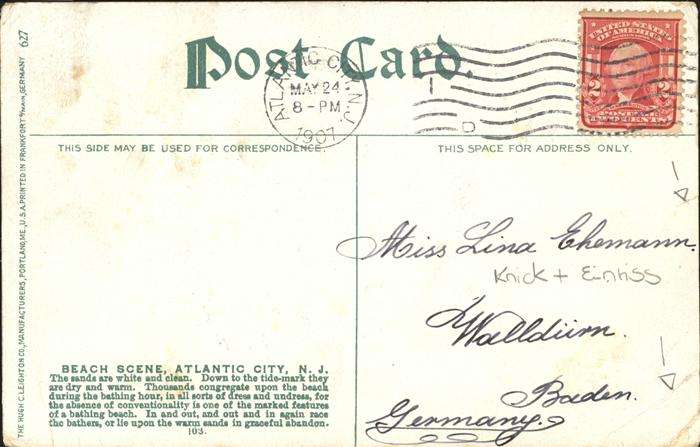 Post Card.
ATLANTIC CITY, N.J.
MAY 24
8 - PM
1907
D
UNITED STATES OF AMERICA
2 2
POSTAGE
TWO CENTS
THIS SIDE MAY BE USED FOR CORRESPONDENCE.
THIS SPACE FOR ADDRESS ONLY.
Miss Lina Ehemann.
Knick + Einriss
Walldürn.
Baden.
Germany.
BEACH SCENE, ATLANTIC CITY, N. J.
The sands are white and clean. Down to the tide-mark they
are dry and warm. Thousands congregate upon the beach
during the bathing hour, in all sorts of dress and undress, for
the absence of conventionality is one of the marked features
of a bathing beach. In and out, and out and in again race
the bathers, or lie upon the warm sands in graceful abandon.
103.
THE HUGH C. LEIGHTON CO., MANUFACTURERS, PORTLAND, ME., U.S.A. PRINTED IN FRANKFORT o/MAIN, GERMANY 627